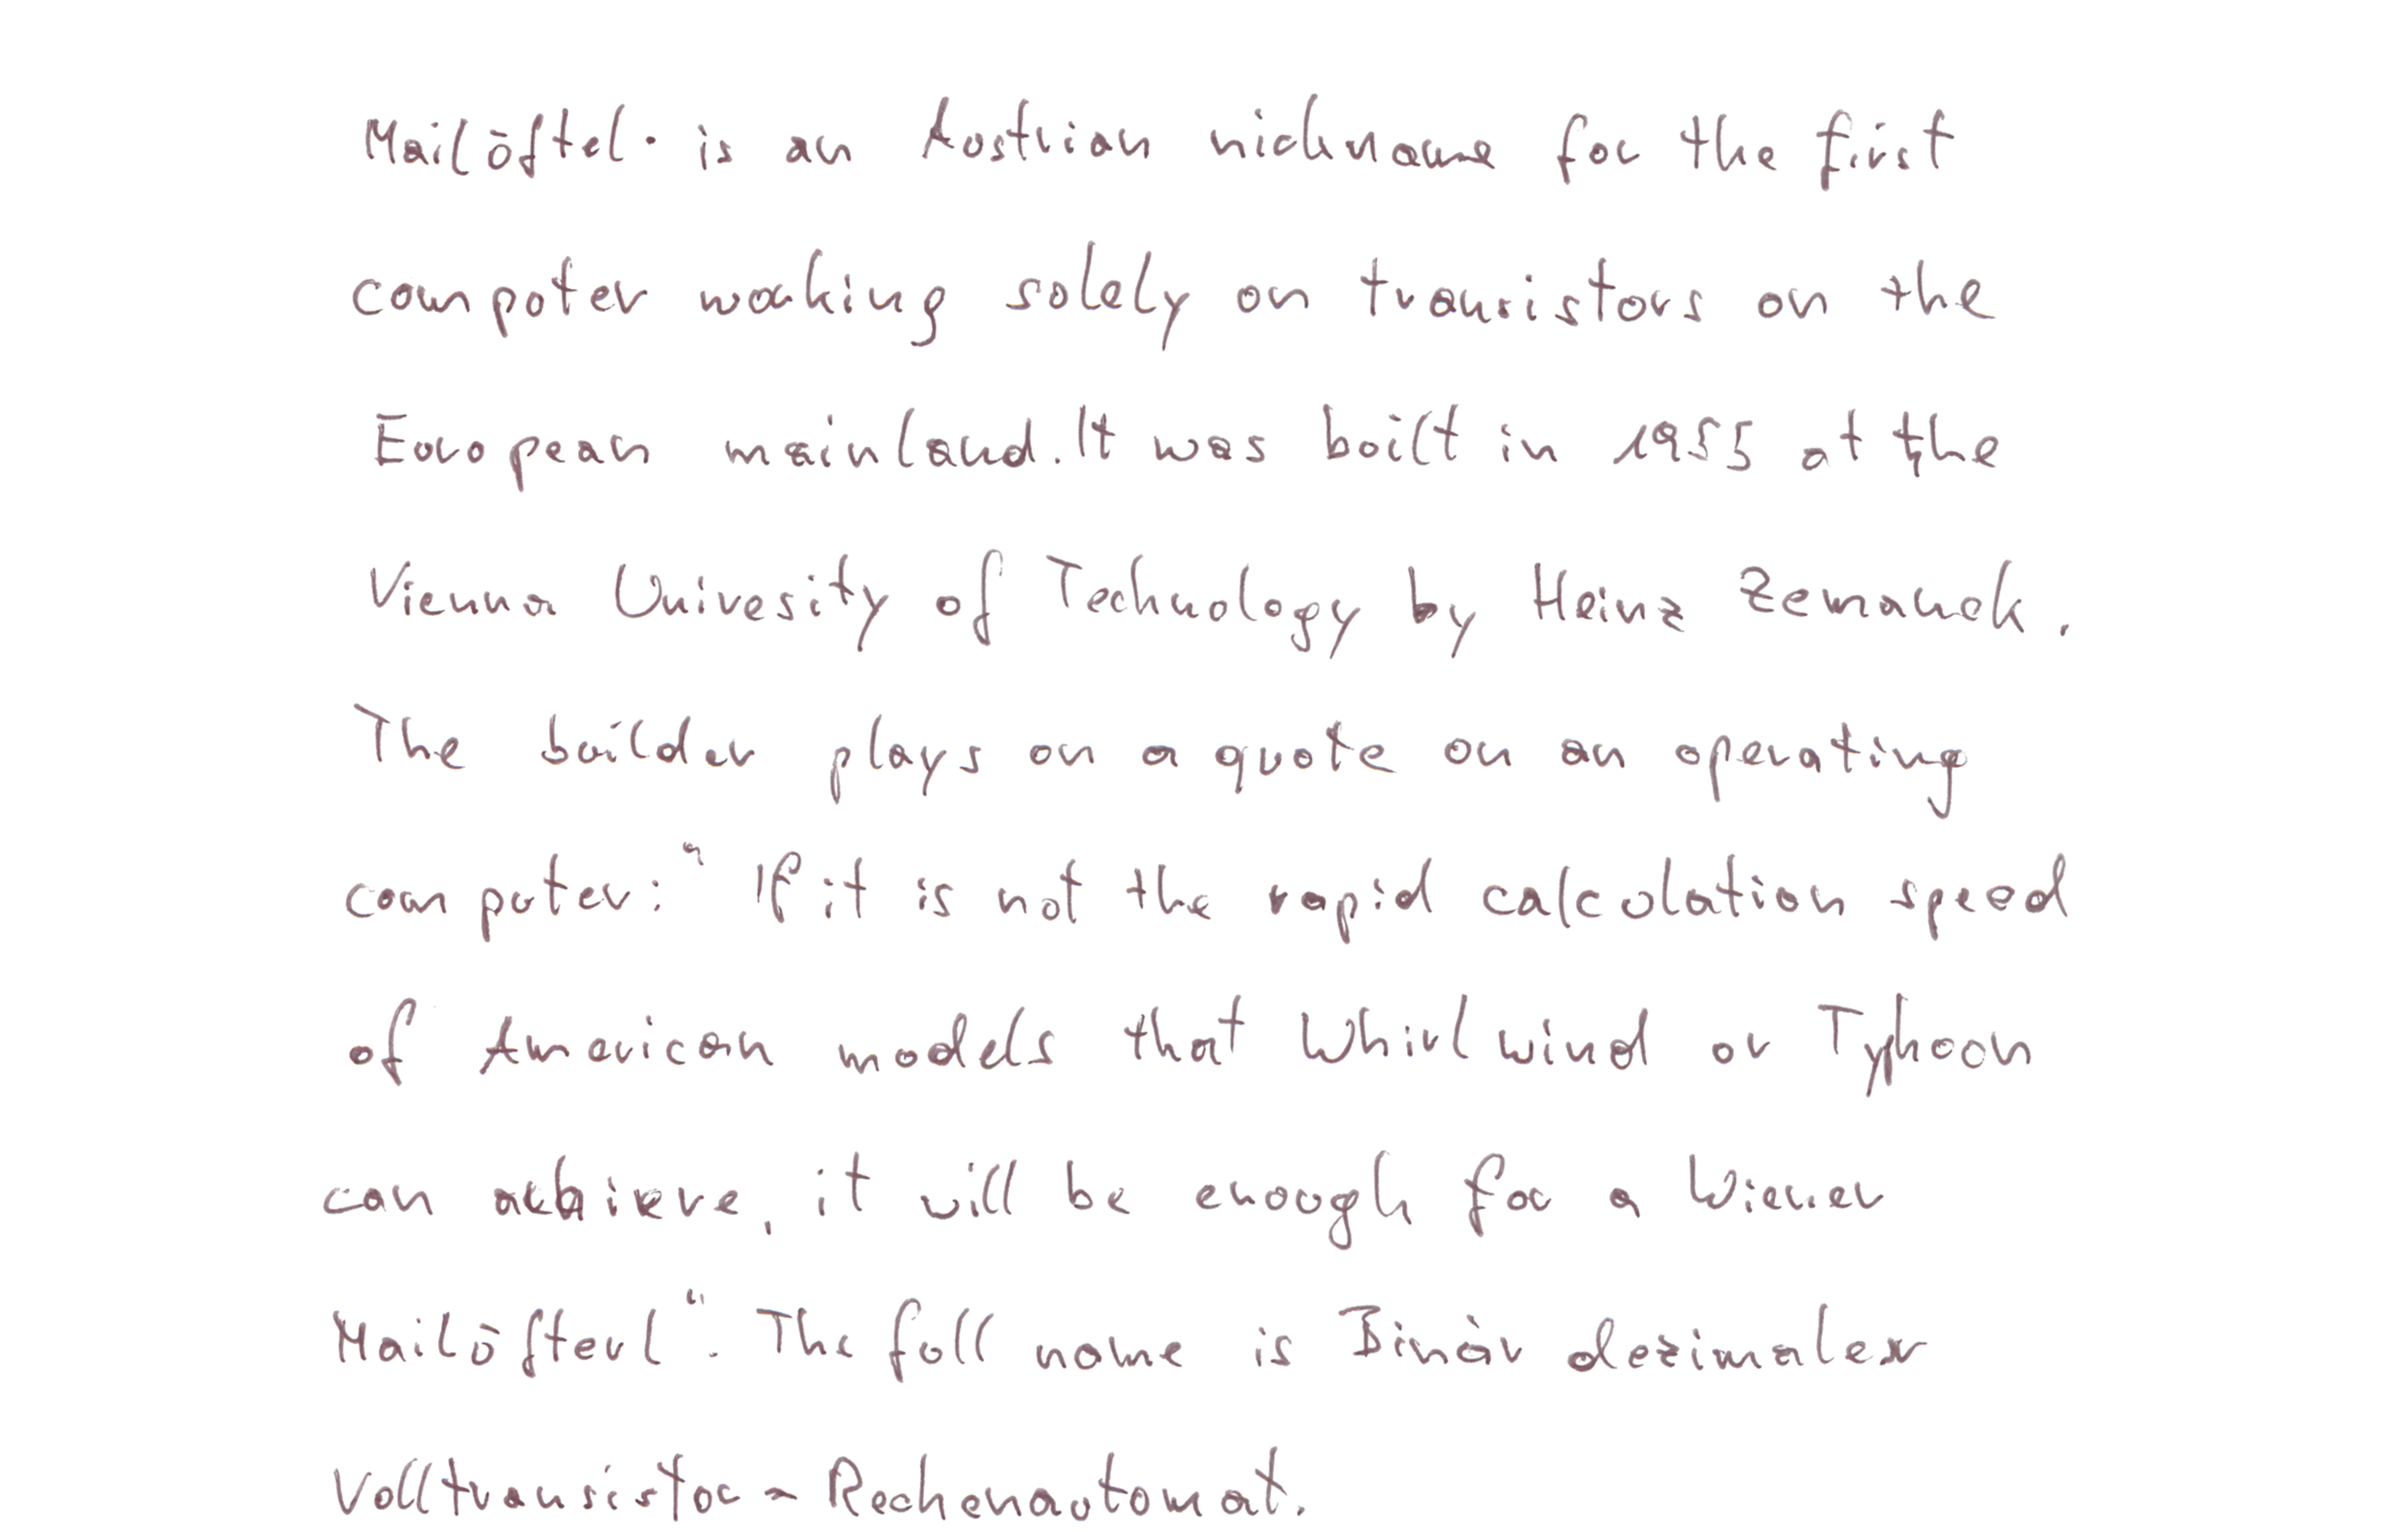 Mailöftel is an Austrian nickname for the first
computer working solely on transistors on the
European mainland. It was built in 1955 at the
Vienna Univesity of Technology by Heinz Zemanek.
The builder plays on a quote on an operating
computer: "If it is not the rapid calculation speed
of American models that Whirlwind or Typhoon
can achieve, it will be enough for a Wiener
Mailöfterl". The full name is Binär dezimaler
Volltransistor-Rechenautomat.